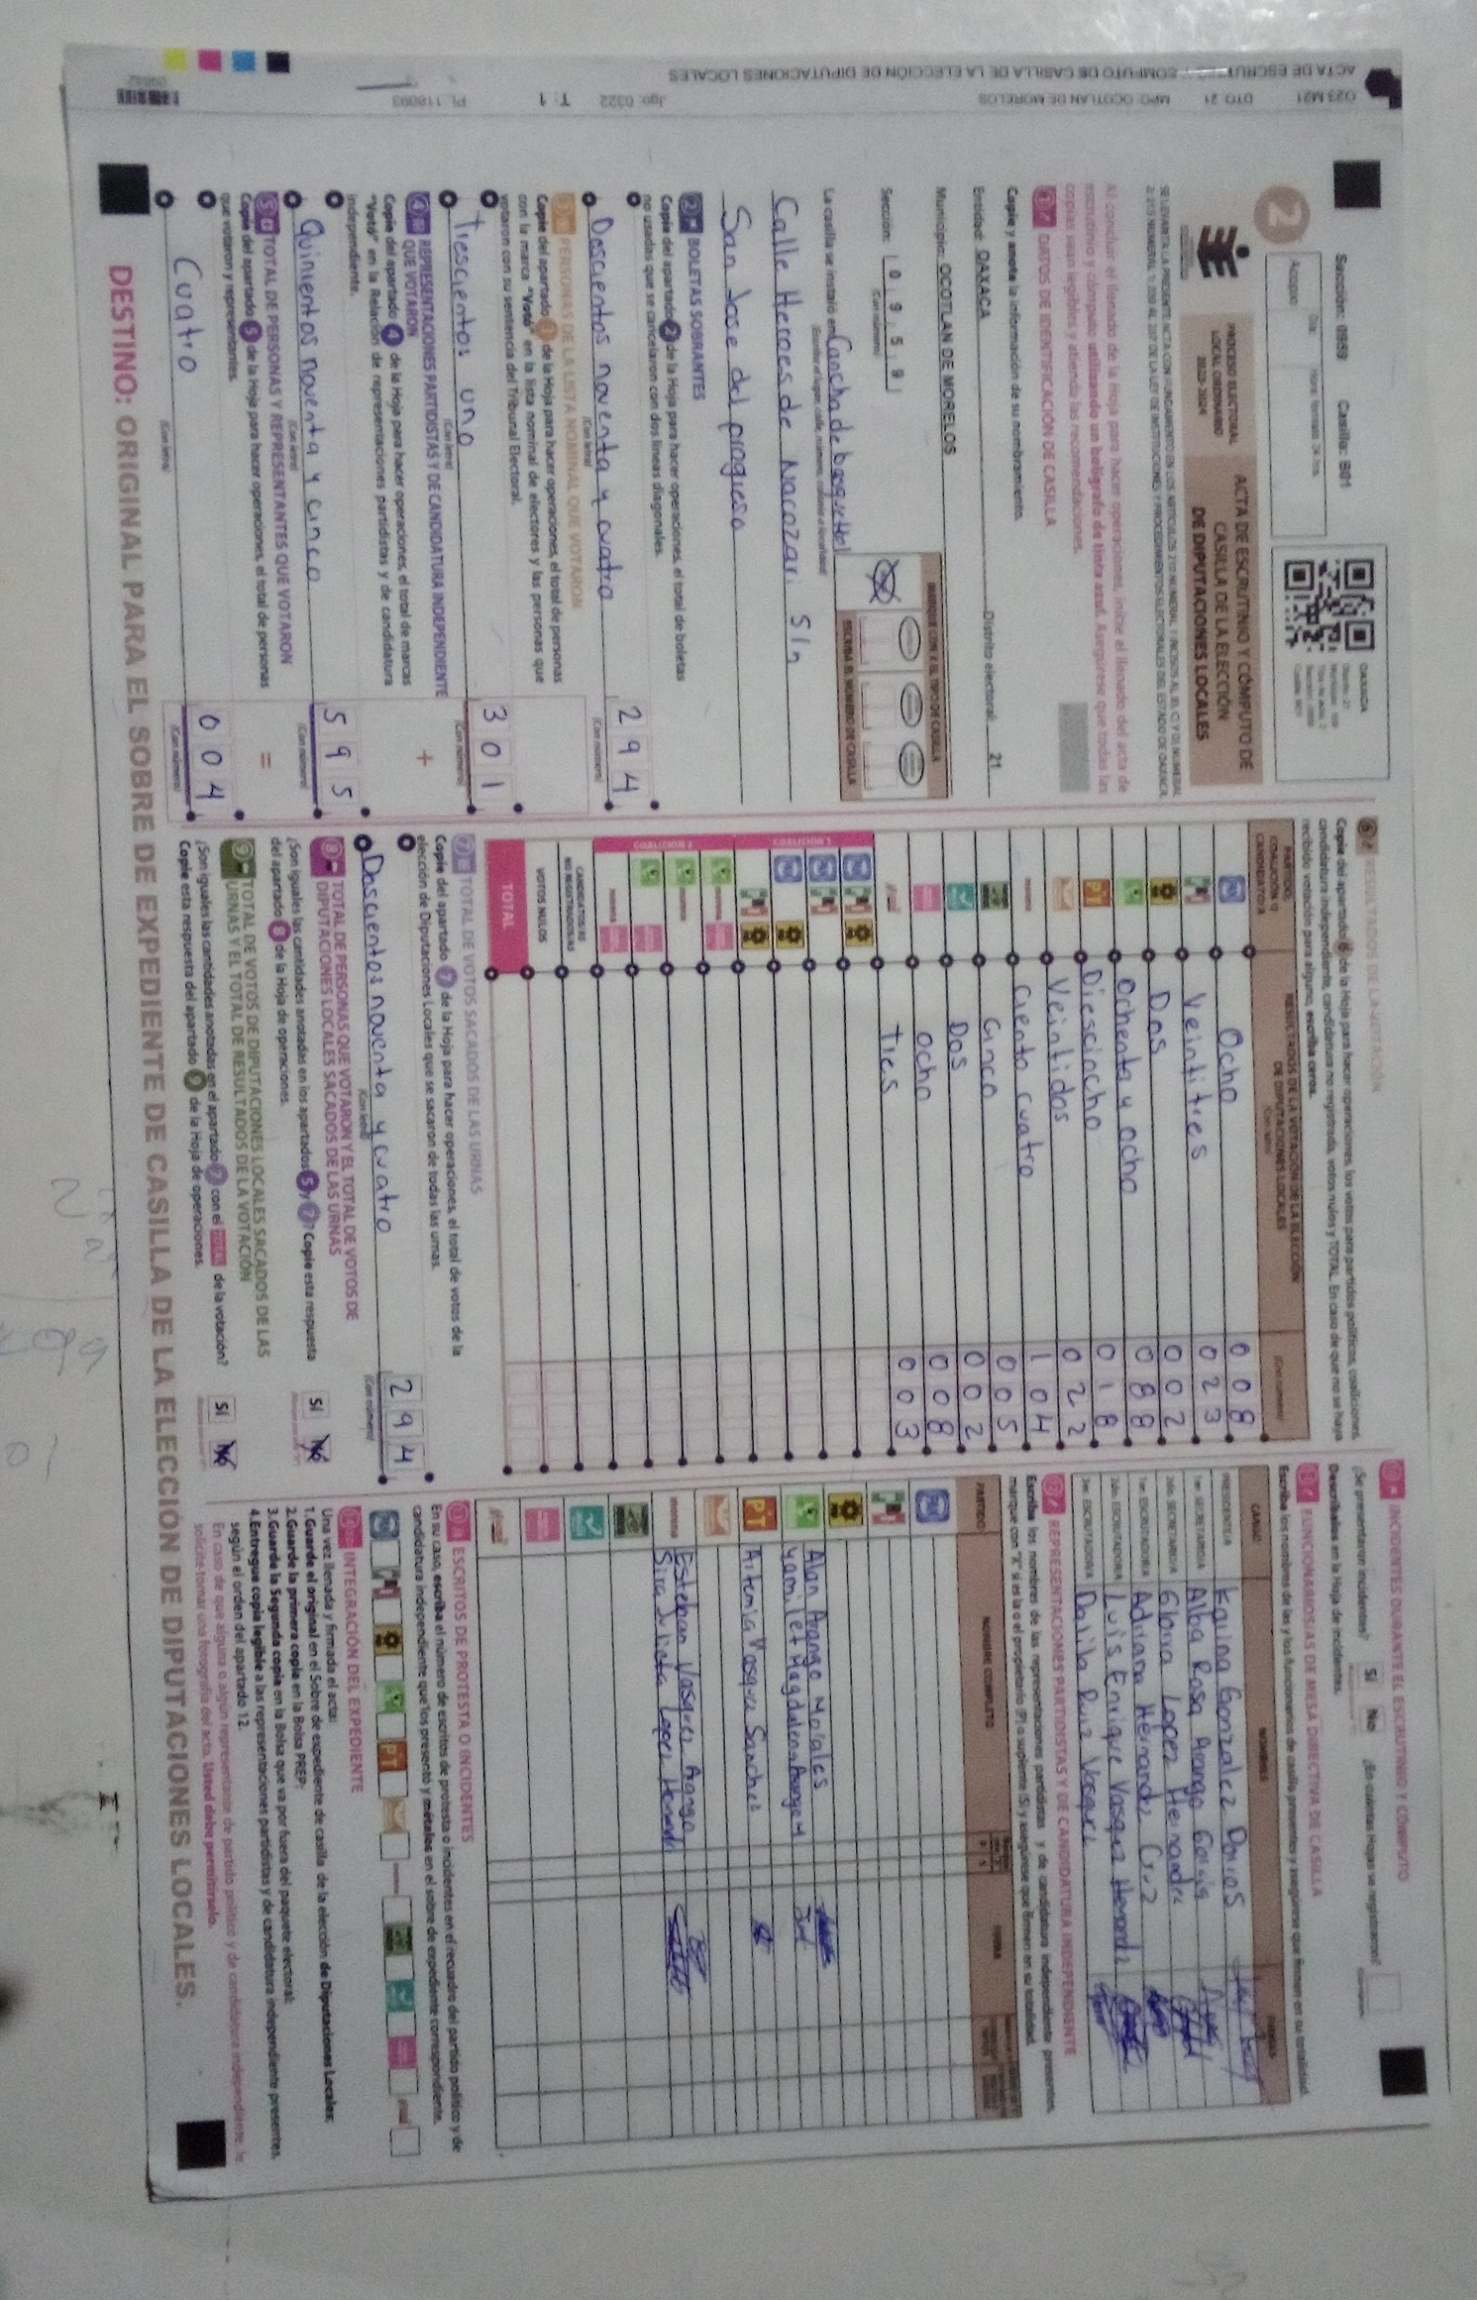 O23 M21 DTO: 21 MPO: OCOTLAN DE MORELOS Jgo: 0322 T: 1 PL: 118093
COMPUTO DE CASILLA DE LA ELECCIÓN DE DIPUTACIONES LOCALES
Sección: 0959 Casilla: B01
2
Acopio:
PROCESO ELECTORAL
LOCAL ORDINARIO
2023-2024
ACTA DE ESCRUTINIO Y CÓMPUTO DE
CASILLA DE LA ELECCIÓN
DE DIPUTACIONES LOCALES
OAXACA
Al concluir el llenado de la Hoja para hacer operaciones, inicie el llenado del acta de
escrutinio y cómputo utilizando un bolígrafo de tinta azul. Asegúrese que todas las
copias sean legibles y atienda las recomendaciones.
1 DATOS DE IDENTIFICACIÓN DE CASILLA
Copie y anote la información de su nombramiento.
Entidad: OAXACA Distrito electoral: 21
Municipio: OCOTLAN DE MORELOS
Sección: 0 9 5 9
(Con número)
MARQUE CON X EL TIPO DE CASILLA
ESCRIBA EL NÚMERO DE CASILLA
La casilla se instaló en: Cancha de basquetbol
Calle Heroes de Nacozari S/n
San Jose del progreso
2 BOLETAS SOBRANTES
Copie del apartado 2 de la Hoja para hacer operaciones, el total de boletas
no usadas que se cancelaron con dos líneas diagonales.
Doscientos noventa y cuatro 2 9 4
(Con letra) (Con número)
3 PERSONAS DE LA LISTA NOMINAL QUE VOTARON
Copie del apartado 3 de la Hoja para hacer operaciones, el total de personas
con la marca "Votó" en la lista nominal de electores y las personas que
votaron con su sentencia del Tribunal Electoral.
Trescientos uno 3 0 1
(Con letra) (Con número)
4 REPRESENTACIONES PARTIDISTAS Y DE CANDIDATURA INDEPENDIENTE
QUE VOTARON
+
Copie del apartado 4 de la Hoja para hacer operaciones, el total de marcas
"Votó" en la Relación de representaciones partidistas y de candidatura
independiente.
Quinientos noventa y cinco 5 9 5
(Con letra) (Con número)
5 TOTAL DE PERSONAS Y REPRESENTANTES QUE VOTARON
=
Copie del apartado 5 de la Hoja para hacer operaciones, el total de personas
que votaron y representantes.
Cuatro 0 0 4
(Con letra) (Con número)
6 RESULTADOS DE LA VOTACIÓN
Copie del apartado 6 de la Hoja para hacer operaciones, los votos para partidos políticos, coaliciones,
candidatura independiente, candidatura no registrada, votos nulos y TOTAL. En caso de que no se haya
recibido votación para alguno, escriba ceros.
PARTIDO,
COALICIÓN O
CANDIDATO/A
RESULTADOS DE LA VOTACIÓN DE LA ELECCIÓN
DE DIPUTACIONES LOCALES
(Con letra)
(Con número)
Ocho 0 0 8
Veintitres 0 2 3
Dos 0 0 2
Ochenta y ocho 0 8 8
PT Diesciocho 0 1 8
Veintidos 0 2 2
morena Ciento cuatro 1 0 4
Cinco 0 0 5
Dos 0 0 2
Ocho 0 0 8
Tres 0 0 3
COALICIÓN 1
COALICIÓN 2
CANDIDATOS/AS
NO REGISTRADOS/AS
VOTOS NULOS
TOTAL
7 TOTAL DE VOTOS SACADOS DE LAS URNAS
Copie del apartado 7 de la Hoja para hacer operaciones, el total de votos de la
elección de Diputaciones Locales que se sacaron de todas las urnas.
Doscientos noventa y cuatro 2 9 4
(Con letra) (Con número)
8 TOTAL DE PERSONAS QUE VOTARON Y EL TOTAL DE VOTOS DE
DIPUTACIONES LOCALES SACADOS DE LAS URNAS
¿Son iguales las cantidades anotadas en los apartados 5 y 7? Copie esta respuesta
del apartado 8 de la Hoja de operaciones.
Sí No
9 TOTAL DE VOTOS DE DIPUTACIONES LOCALES SACADOS DE LAS
URNAS Y EL TOTAL DE RESULTADOS DE LA VOTACIÓN
¿Son iguales las cantidades anotadas en el apartado 7 con el TOTAL de la votación?
Copie esta respuesta del apartado 9 de la Hoja de operaciones.
Sí No
10 INCIDENTES DURANTE EL ESCRUTINIO Y CÓMPUTO
¿Se presentaron incidentes? Sí No ¿En cuántas Hojas se registraron?
Descríbalos en la Hoja de incidentes.
11 FUNCIONARIOS/AS DE MESA DIRECTIVA DE CASILLA
Escriba los nombres de las y los funcionarios de casilla presentes y asegúrese que firmen en su totalidad.
CARGO NOMBRES FIRMAS
PRESIDENTE/A Karina Gonzalez
1er. SECRETARIO/A Alba Rosa Arango Garcia
2do. SECRETARIO/A Gloria Lopez Hernandez
1er. ESCRUTADOR/A Adriana Hernandez Cruz
2do. ESCRUTADOR/A Luis Enrique Vasquez Hernandez
3er. ESCRUTADOR/A Dalila Ruiz Vasquez
12 REPRESENTACIONES PARTIDISTAS Y DE CANDIDATURA INDEPENDIENTE
Escriba los nombres de las representaciones partidistas y de candidatura independiente presentes,
marque con "X" si es la o el propietario (P) o suplente (S) y asegúrese que firmen en su totalidad.
PARTIDO NOMBRE COMPLETO FIRMA
Alan Arango Morales
Yamilet Magdalena Arango M
PT Artemia Vasquez Sanchez
morena Esteban Vasquez Arango
Lopez Hernandez
13 ESCRITOS DE PROTESTA O INCIDENTES
En su caso, escriba el número de escritos de protesta o incidentes en el recuadro del partido político y de
candidatura independiente que los presentó y métalos en el sobre de expediente correspondiente.
14 INTEGRACIÓN DEL EXPEDIENTE
Una vez llenada y firmada el acta:
1.Guarde el original en el Sobre de expediente de casilla de la elección de Diputaciones Locales;
2.Guarde la primera copia en la Bolsa PREP;
3.Guarde la Segunda copia en la Bolsa que va por fuera del paquete electoral;
4.Entregue copia legible a las representaciones partidistas y de candidatura independiente presentes,
según el orden del apartado 12.
En caso de que alguna o algún representante de partido político y de candidatura independiente, le
solicite tomar una fotografía del acta, Usted debe permitírselo.
DESTINO: ORIGINAL PARA EL SOBRE DE EXPEDIENTE DE CASILLA DE LA ELECCIÓN DE DIPUTACIONES LOCALES.